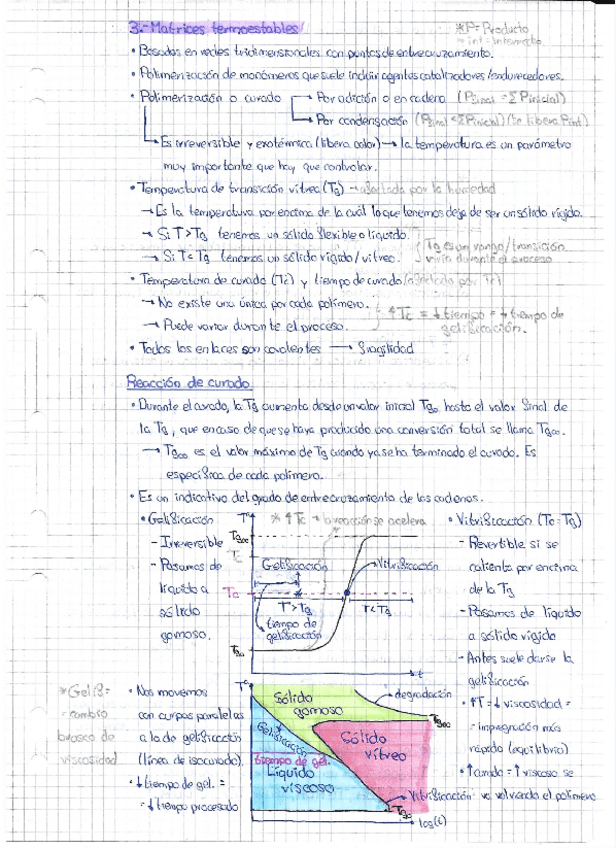 3.- Matrices termoestables
*P = Producto
int = Intermedio
• Basadas en redes tridimensionales con puntos de entrecruzamiento.
• Polimerización de monómeros que suele incluir agentes catalizadores/endurecedores.
• Polimerización o curado → Por adición o en cadena (Pfinal = ΣPinicial)
→ Por condensación (Pfinal < ΣPinicial) (Se libera Pint)
→ Es irreversible y exotérmica (libera calor) → la temperatura es un parámetro
muy importante que hay que controlar.
• Temperatura de transición vítrea (Tg) → afectada por la humedad
→ Es la temperatura por encima de la cuál lo que tenemos deja de ser un sólido rígido.
→ Si T > Tg tenemos un sólido flexible o líquido.
→ Si T < Tg tenemos un sólido rígido/vítreo.
Tg es un rango/transición
durante el proceso
• Temperatura de curado (Tc) y tiempo de curado
→ No existe una única por cada polímero.
→ Puede variar durante el proceso.
↑Tc = ↓tiempo = ↓tiempo de
gelificación.
• Todos los enlaces son covalentes → fragilidad
Reacción de curado
• Durante el curado, la Tg aumenta desde un valor inicial Tg0 hasta el valor final de
la Tg, que en caso de que se haya producido una conversión total se llama Tg∞.
→ Tg∞ es el valor máximo de Tg cuando ya se ha terminado el curado. Es
específica de cada polímero.
• Es un indicativo del grado de entrecruzamiento de las cadenas.
• Gelificación
- Irreversible
- Pasamos de
líquido a
sólido
gomoso.
T°
* ↑Tc → la reacción se acelera
Tg∞
Tc
Gelificación
Vitrificación
Tc
T > Tg
T < Tg
tiempo de
gelificación
Tg0
t
• Vitrificación (Tc = Tg)
- Revertible si se
calienta por encima
de la Tg
- Pasamos de líquido
a sólido rígido
- Antes suele darse la
gelificación
* Gelif =
cambio
brusco de
viscosidad
• Nos movemos
con curvas paralelas
a la de gelificación
(línea de isocurado).
• ↓tiempo de gel. =
= ↓tiempo procesado
T°
Sólido
gomoso
degradación
Tg∞
Gelificación
Sólido
vítreo
tiempo de gel.
Líquido
viscoso
Vitrificación
Tg0
log(t)
• ↑T = ↓viscosidad =
= impregnación más
rápida (equilibrio)
• ↑curado = ↑viscoso se
va volviendo el polímero